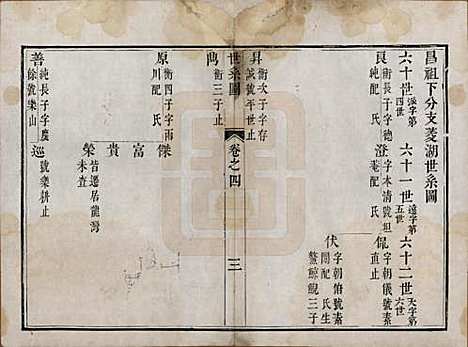 昌祖下分支菱湖世系圖
六十世 派字第四世 六十一世 遠字第五世 六十二世 天字第六世
良 衡長子字德純配 氏
澄 字本清號坦菴配 氏
侃 字朝儀號素直止
伏 字朝俯號素閒配 氏生鰲鯨鯢三子
昇 衡次子字存誠號平世止
世系圖
卷之四
三
衡三子止
原 衡四子字雨川配 氏
傑
富
貴
榮 皆遷居龍灣未查
善 純長子字慶餘號樂山
巡 號樂耕止